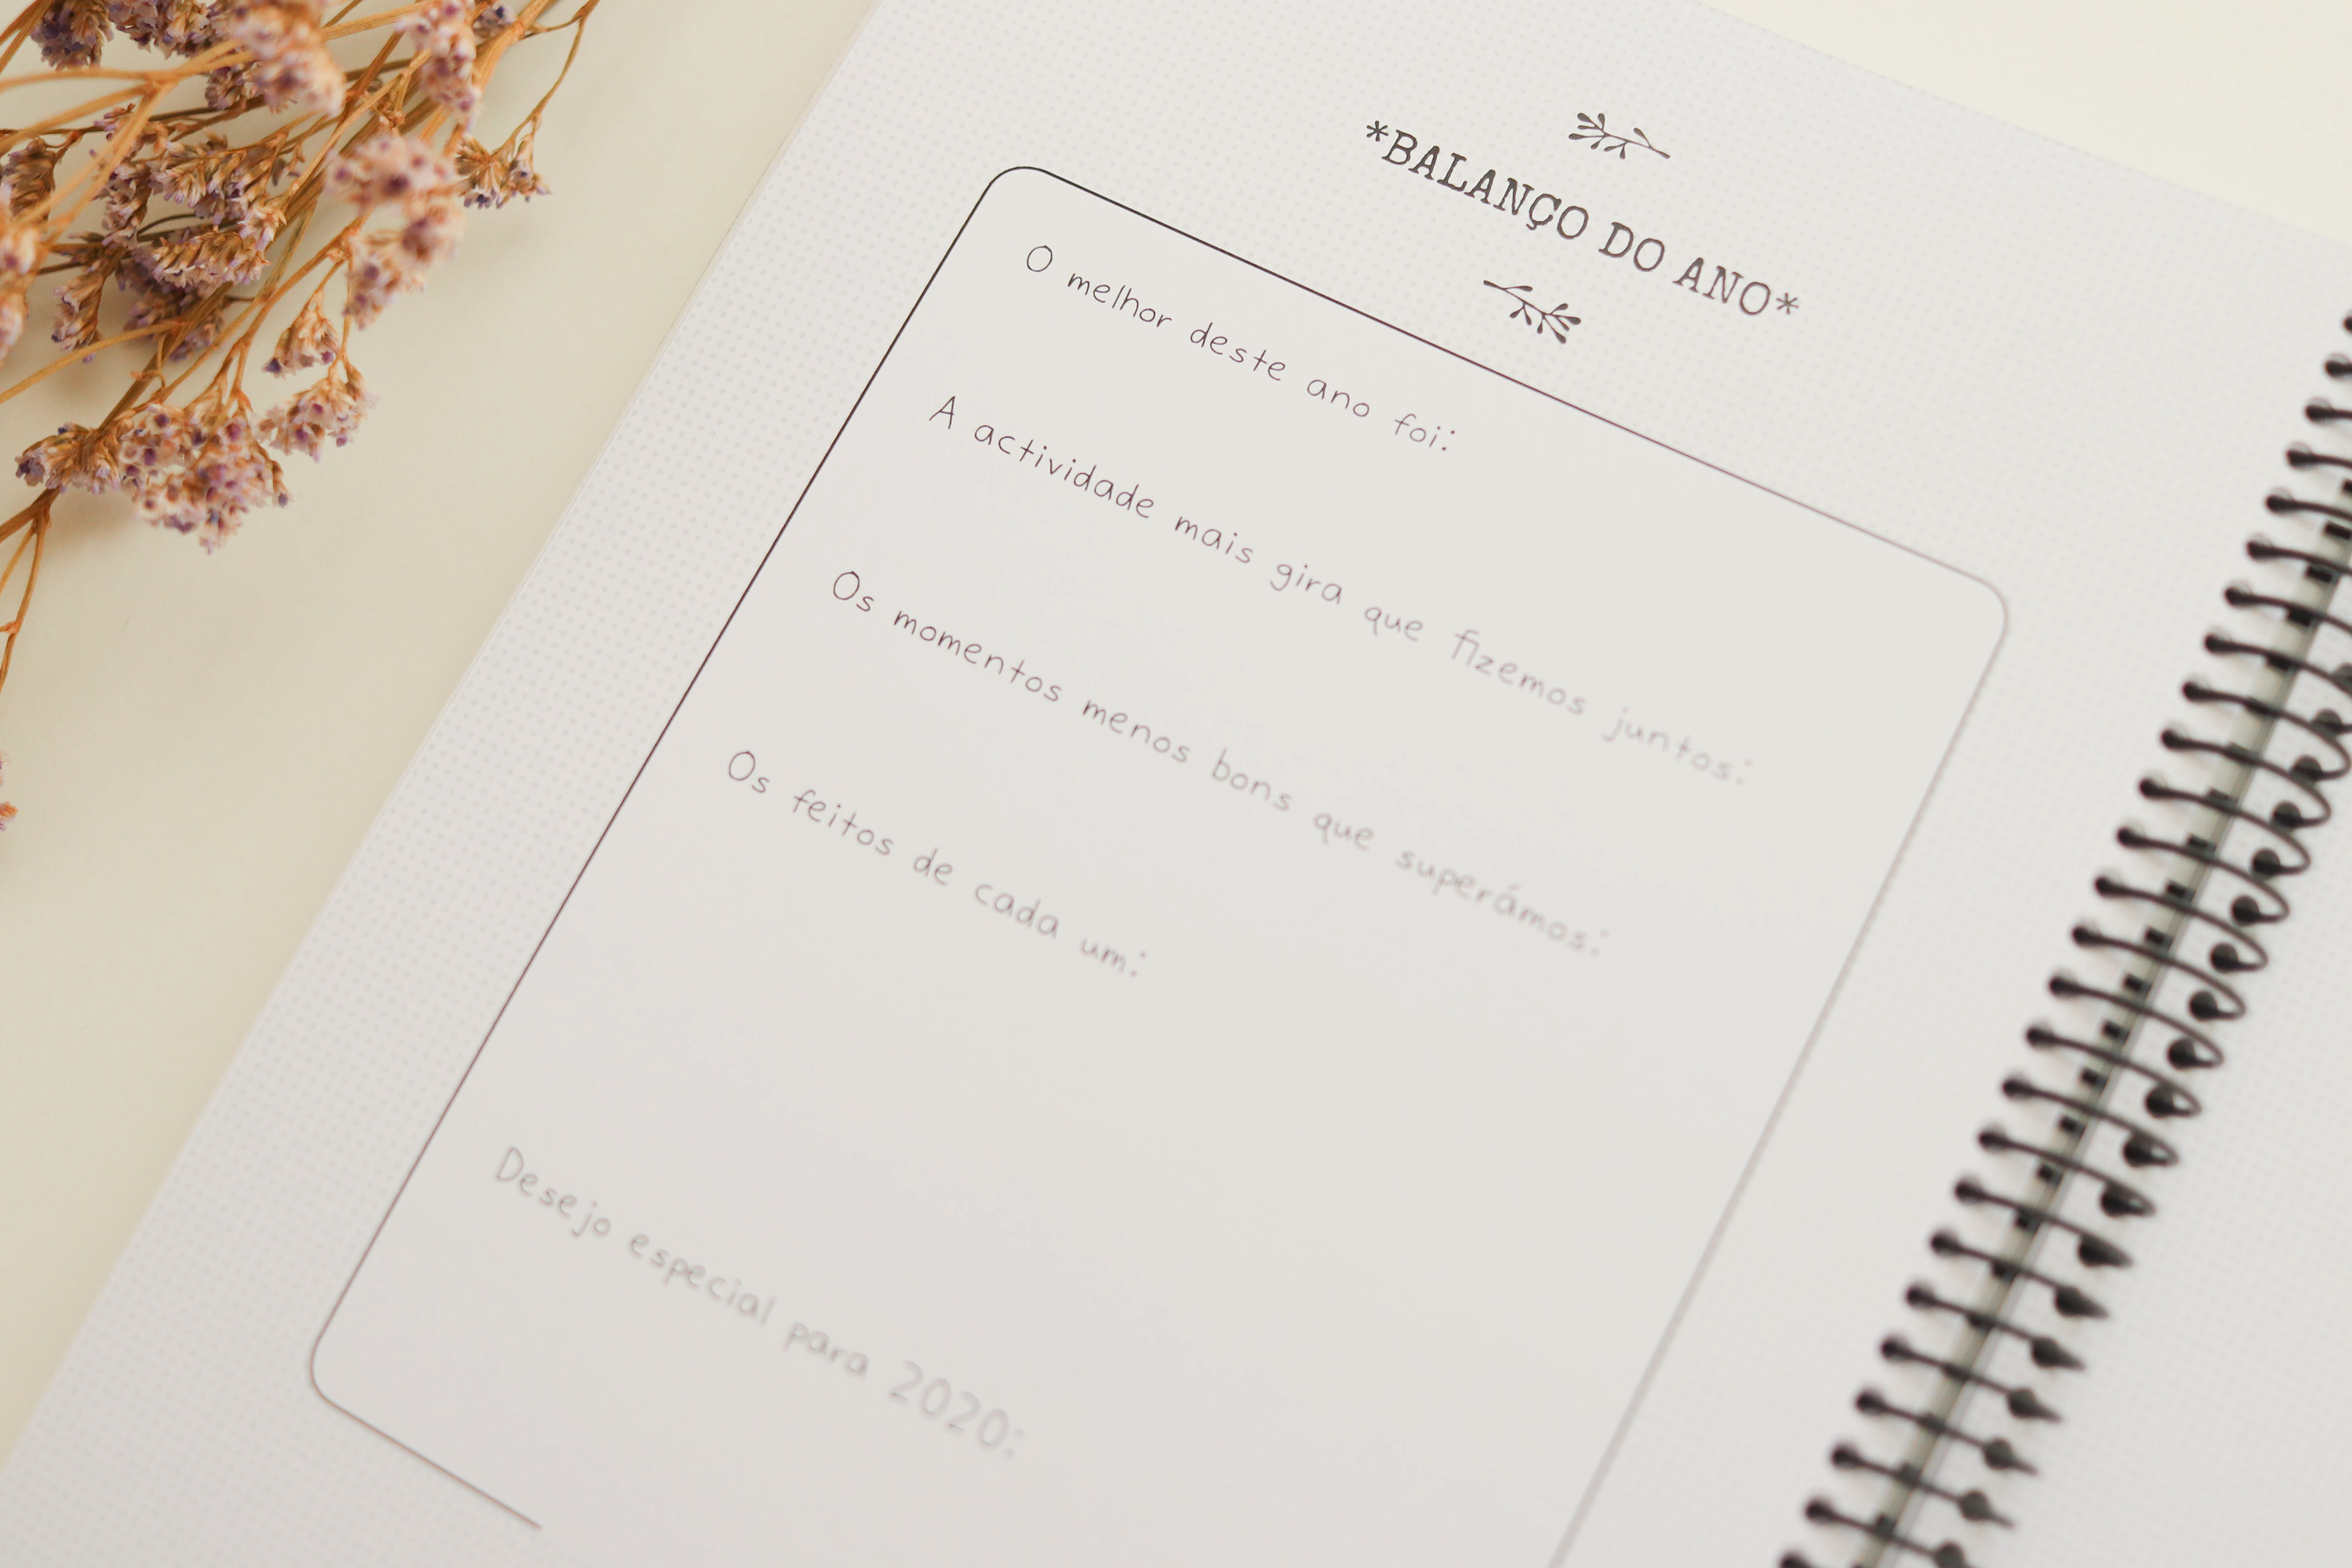 *BALANÇO DO ANO*
O melhor deste ano foi:
A actividade mais gira que fizemos juntos:
Os momentos menos bons que superámos:
Os feitos de cada um:
Desejo especial para 2020: